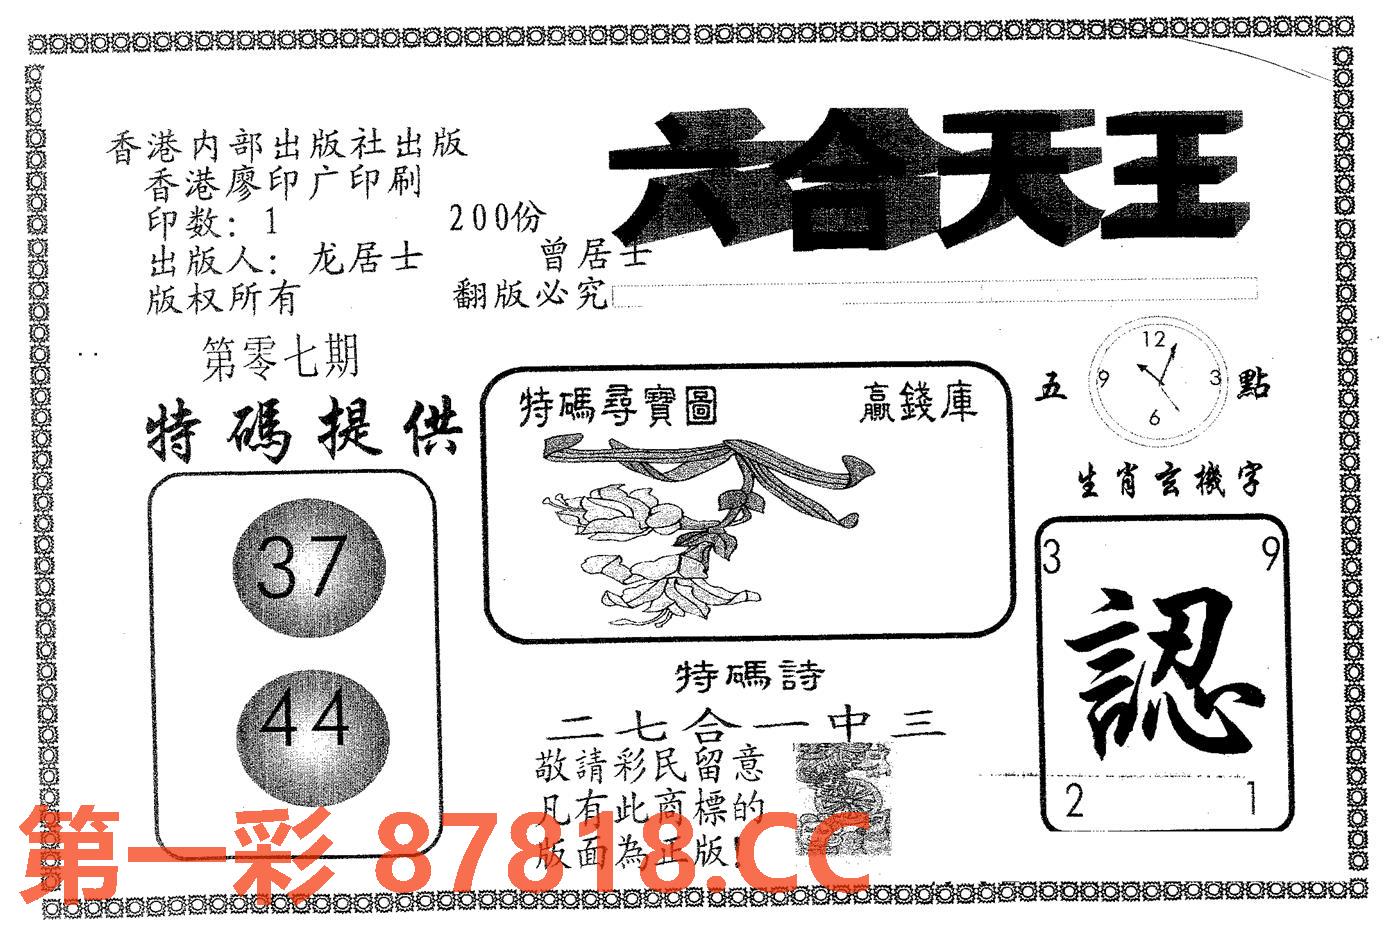 六合天王
香港内部出版社出版
香港廖印广印刷
印数: 1 200份
出版人: 龙居士 曾居士
版权所有 翻版必究
第零七期
特碼提供
37
44
特碼尋寶圖 贏錢庫
五 點
12
9 3
6
生肖玄機字
3 9
認
2 1
特碼詩
二七合一中三
敬請彩民留意
凡有此商標的
版面為正版!
第一彩 87818.CC